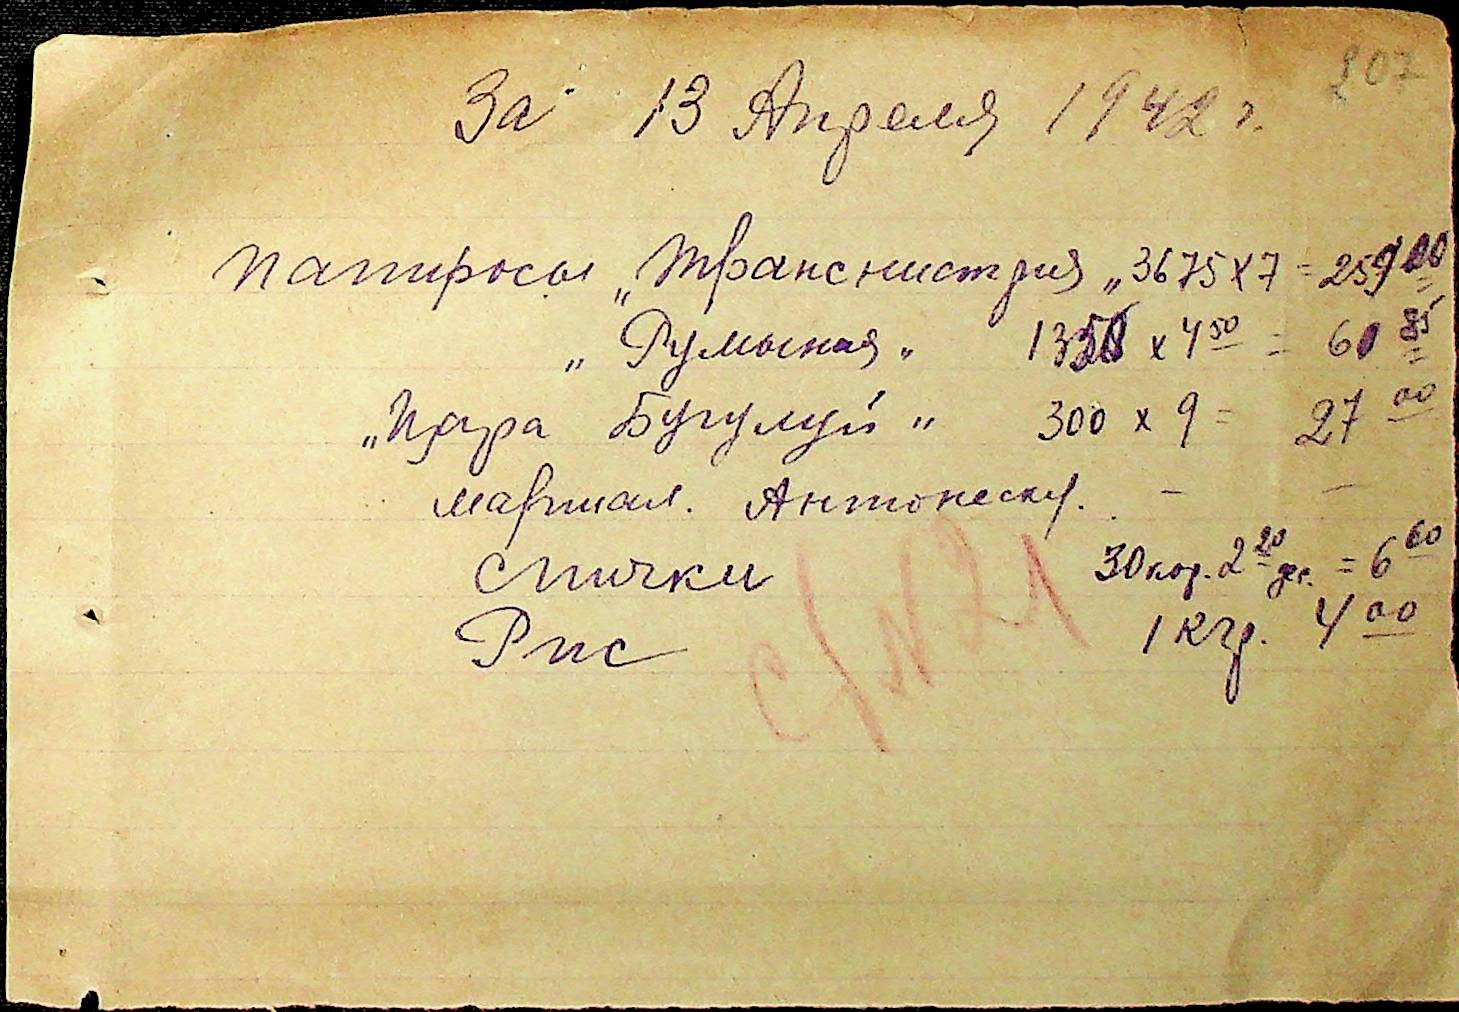 207
За 13 Апреля 1942 г.
Папиросы „Транснистрия„ 3675 х 7 = 257 00
„ Румыния „ 1350 х 4 50 = 60 85
„Цара Бугулуй" 300 х 9 = 27 00
маршал. Антонеску. - -
Спички 30 кор. 2 20 дес. = 6 60
Рис 1 кгр. 4 00